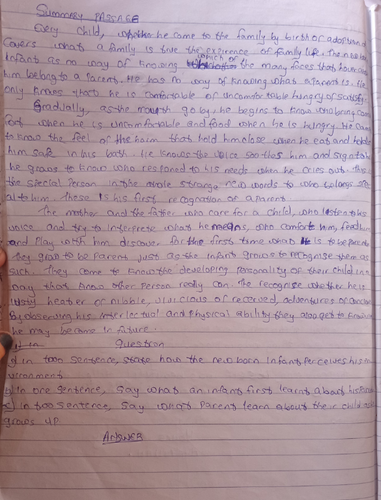 Summary PASSAGE
Every child, whether he come to the family by birth or adoption
Covers what a family is true the exrience of family life. The new born
infant as no way of knowing which of the many faces that hover over
him belong to a parent. He has no way of knowing what a parent is. He
only knows that he is comfortable or uncomfortable hungry or satisfy
Gradually, as the mouth go by, he begins to know what being com
fort when he is uncomfortable and food when he is hungry. He
to know the feel of the harm that hold him close when he eat and
him safe in his bath. He knows the voice soothes him and
he grows to know who responed to his needs when he cries out. This
the special person in the whole strange new words to who belongs
al to him. These is his first recognation of a parent
The mother and the father who care for a child, who listen to his
voice and try to interprete what he means, who comfort him, feed him
and play with him discover for the first time what it is to be parent
They grow to be parent just as the infant grows to recognise them as
such. They come to know the developing personality of their child in a
way that know other person really can. The recognise whether he is
heater or nobile, vivicious of reserved, adventures or
By observing his interlectual and physical ability they also get to know
he may become in future.
question
a) In two sentence, state how the new born infant perceives his
vyronment
b) In one sentence, say what an infant first learnt about
c) In two sentence, say what parent learn about their child
grows up.
Answer